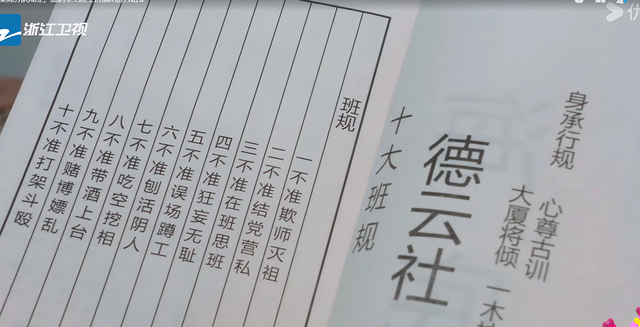 浙江卫视
身承行规 心尊古训
大厦将倾 一木
德云社
十大班规
班规
一不准欺师灭祖
二不准结党营私
三不准在班思班
四不准狂妄无耻
五不准误场蹲工
六不准刨活阴人
七不准吃空挖相
八不准带酒上台
九不准赌博嫖乱
十不准打架斗殴